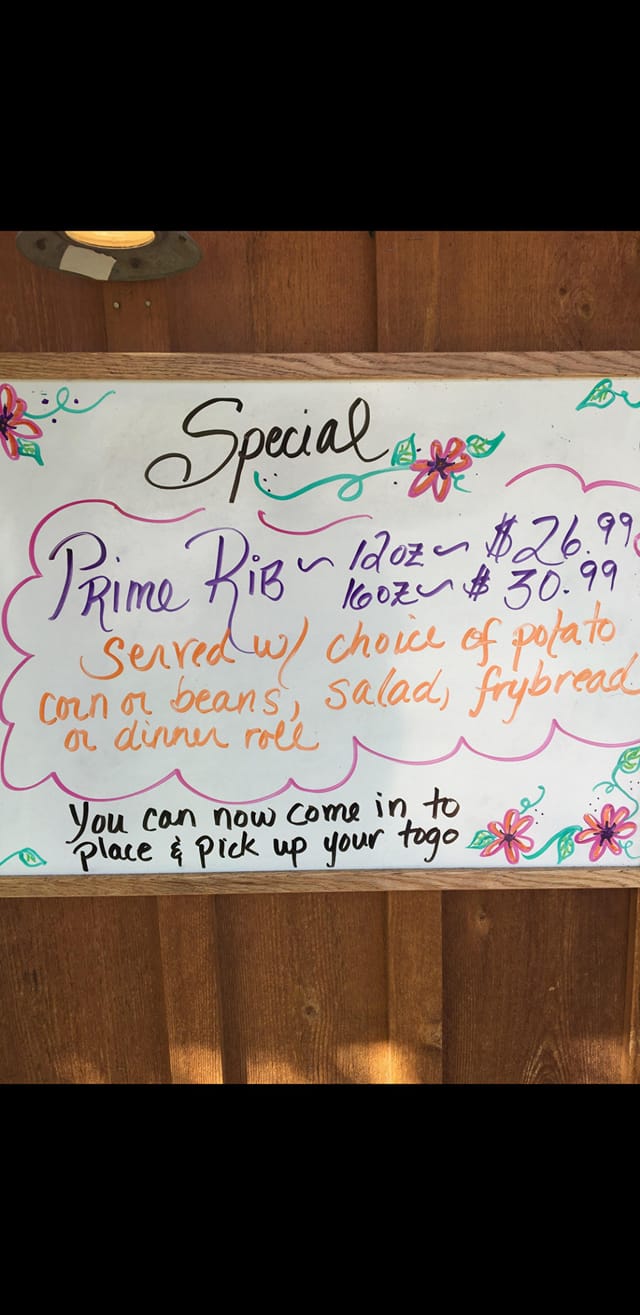 Special
Prime Rib ~ 12oz ~ $26.99
16oz ~ $30.99
Served w/ choice of potato
corn or beans, salad, frybread
or dinner roll
You can now come in to
place & pick up your togo